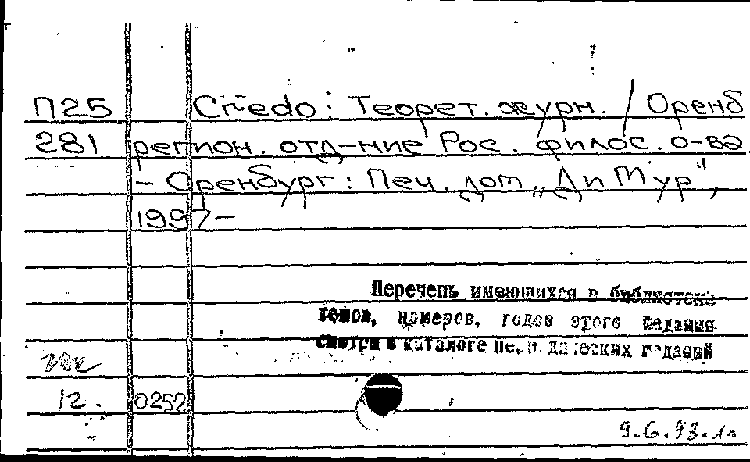 П25 Credo: Теорет. журн. / Оренб
281 регион. отд-ние Рос. филос. о-ва
– Оренбург: Печ. дом „ДиМур",
1997–
Перечень имеющихся в библиотеке
томов, номеров, годов этого издания
смотри в каталоге периодических изданий
12. 0252